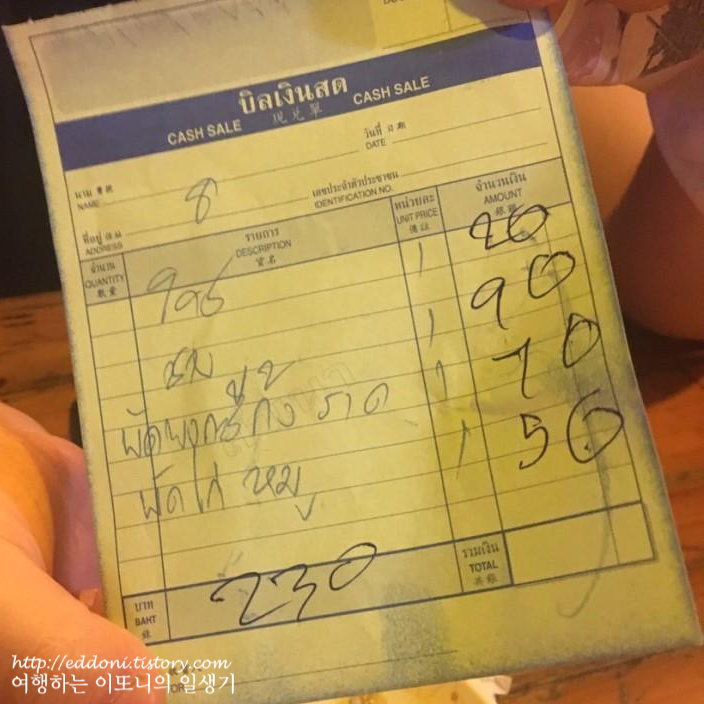 บิลเงินสด
CASH SALE 現兌單 CASH SALE
วันที่ 日期
DATE
นาม 寶號
NAME 8
เลขประจำตัวประชาชน
IDENTIFICATION NO.
ที่อยู่ 住址
ADDRESS
จำนวน รายการ หน่วยละ จำนวนเงิน
QUANTITY DESCRIPTION UNIT PRICE AMOUNT
數量 貨名 價銀 銀額
1 20
1 90
ผัด ราด 1 70
ผัด หมู 1 50
บาท รวมเงิน
BAHT 230 TOTAL
銖 共銀
http://eddoni.tistory.com
여행하는 이또니의 일생기